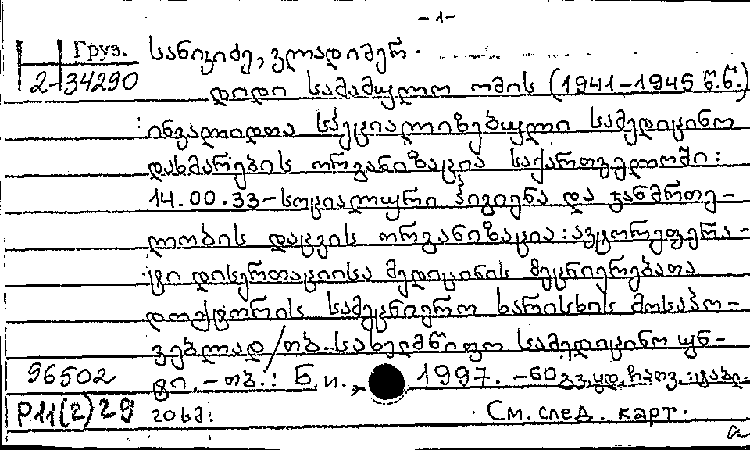 -1-
Груз. სანიკიძე, ვლადიმერ.
2-34290
დიდი სამამულო ომის (1941-1945 წ.წ.)
ინვალიდთა სპეციალიზებული სამედიცინო
დახმარების ორგანიზაცია საქართველოში:
14.00.33-სოციალური ჰიგიენა და ჯანმრთე-
ლობის დაცვის ორგანიზაცია: ავტორეფერა-
ტი დისერთაციისა მედიცინის მეცნიერებათა
დოქტორის სამეცნიერო ხარისხის მოსაპო-
ვებლად / თბ. სახელმწიფო სამედიცინო უნ-
96502 ტი. - თბ.: Б.и., 1997. - 60გვ. ყდ. ჩათვ.: ტაბ.
Р11(2)29 20სმ.
См. след. карт.